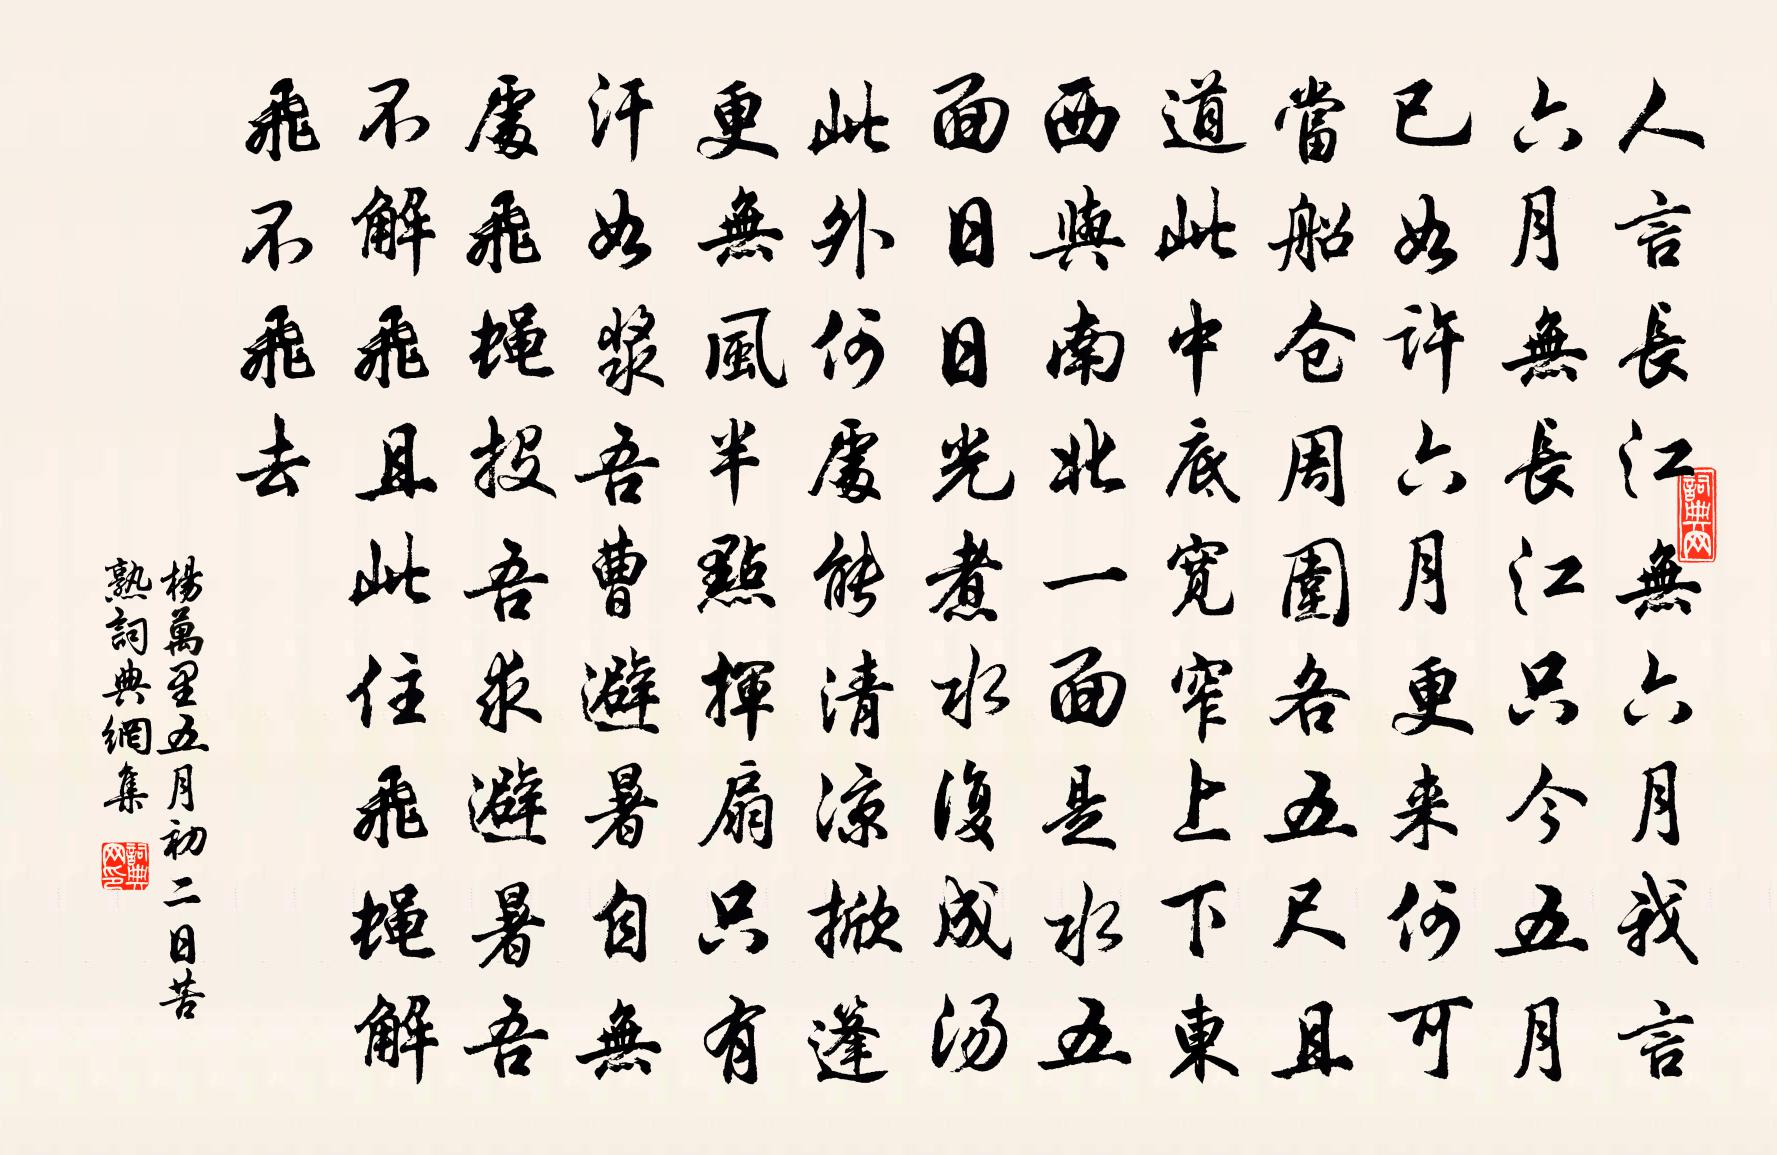 人言長江無六月我言
六月無長江只今五月
已如許六月更来何可
當船仓周圍各五尺且
道此中底寬窄上下東
西與南北一面是水五
面日日光煮水復成湯
此外何處能清涼掀蓬
更無風半點揮扇只有
汗如漿吾曹避暑自無
處飛蝇投吾求避暑吾
不解飛且此住飛蝇解
飛不飛去
楊萬里五月初二日苦
熟詞典網集
詞典网
詞典网印